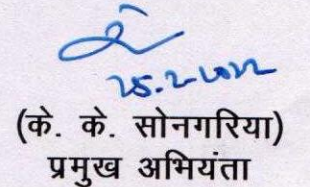 25.2.2022
(के. के. सोनगरिया)
प्रमुख अभियंता